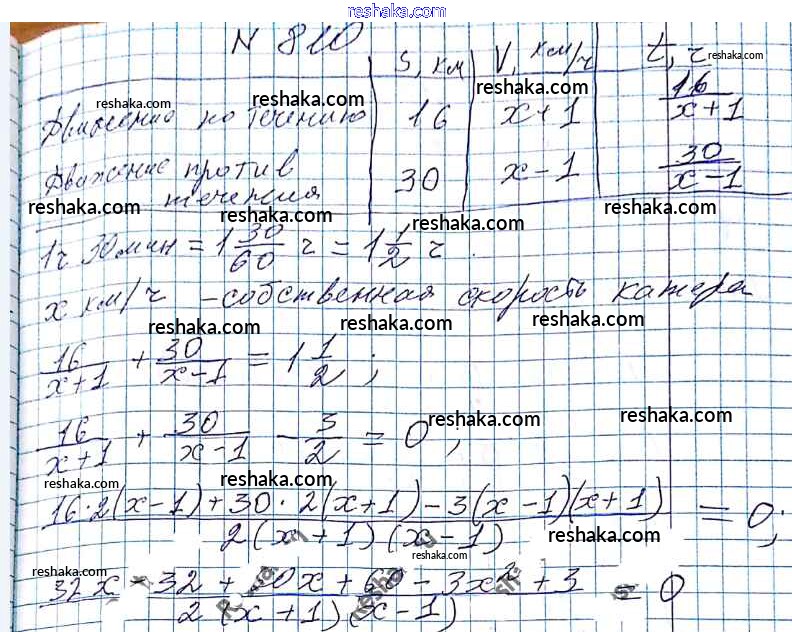 reshaka.com
N 810
S, км V, км/ч t, ч
reshaka.com reshaka.com reshaka.com
Движение по течению 16 x+1 16/(x+1)
reshaka.com
Движение против течения 30 x-1 30/(x-1)
reshaka.com reshaka.com reshaka.com reshaka.com
1ч 30мин = 1 30/60 ч = 1 1/2 ч.
x км/ч - собственная скорость катера
reshaka.com reshaka.com reshaka.com
16/(x+1) + 30/(x-1) = 1 1/2;
reshaka.com reshaka.com
16/(x+1) + 30/(x-1) - 3/2 = 0;
reshaka.com reshaka.com
(16·2(x-1)+30·2(x+1)-3(x-1)(x+1))/(2(x+1)(x-1)) = 0;
reshaka.com reshaka.com
reshaka.com
(32x-32+60x+60-3x²+3)/(2(x+1)(x-1)) = 0